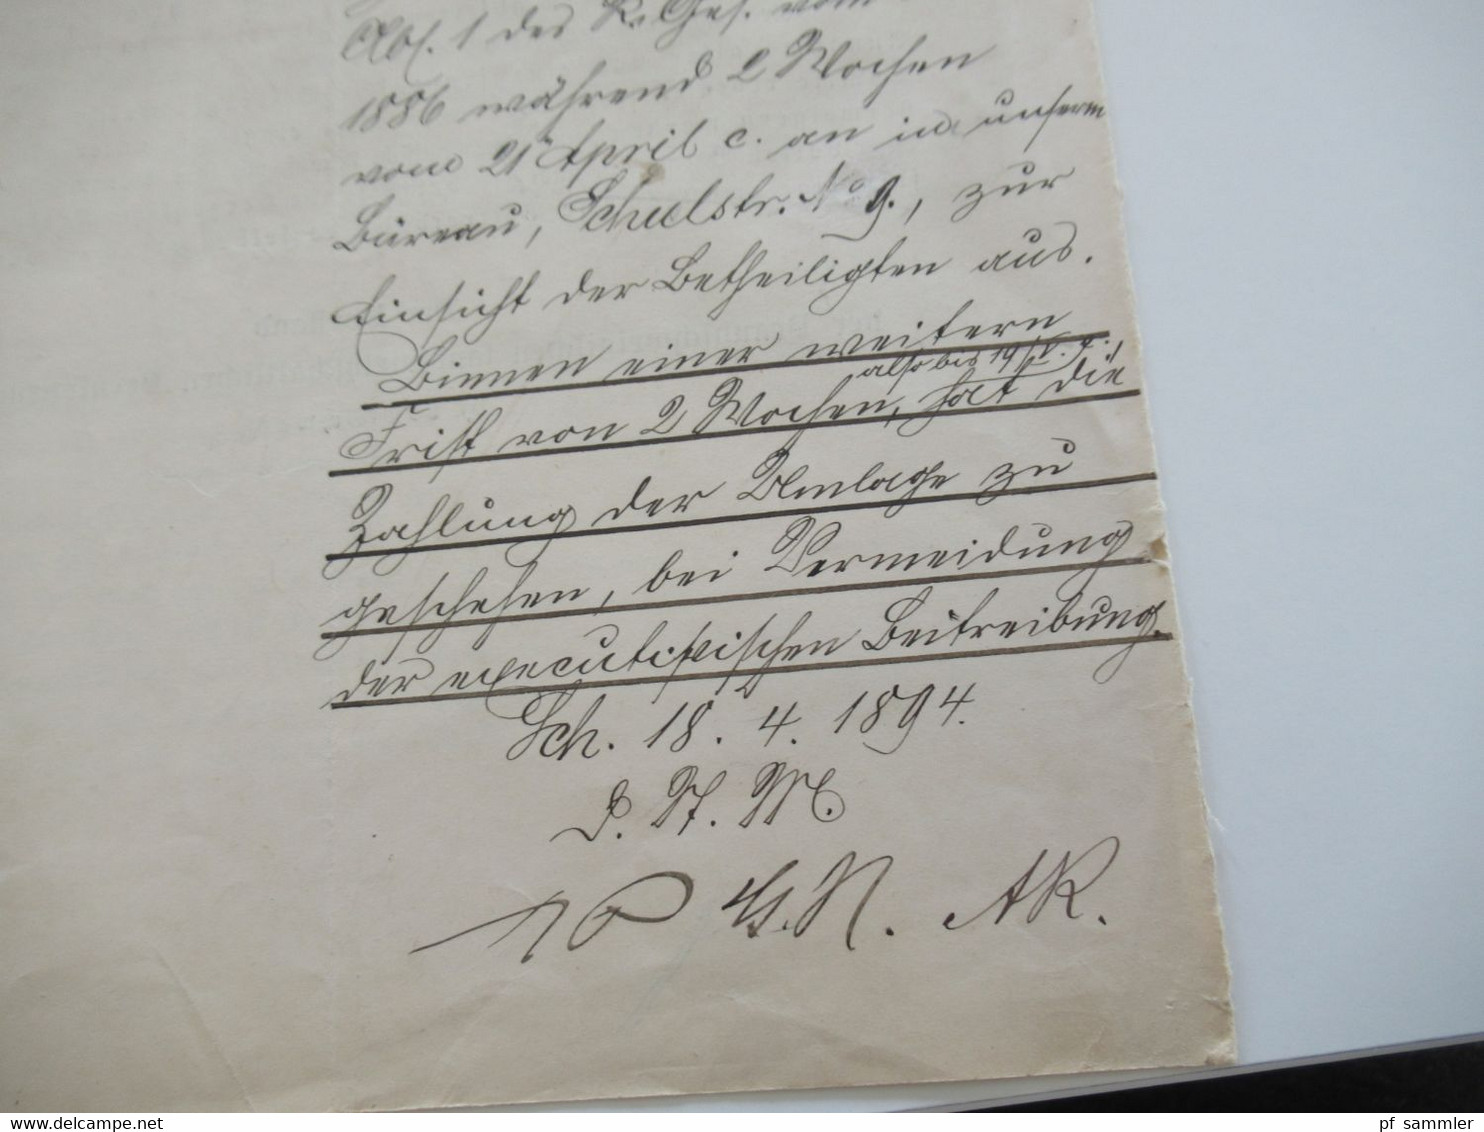 Abs. 1 des R. Ges. vom
1886 während 2 Wochen
vom 21 April c. an in unserm
Büreau, Schulstr. No 9., zur
Einsicht der Betheiligten aus.
Binnen einer weitern
also bis 19/V. c.
Frist von 2 Wochen, hat die
Zahlung der Umlage zu
geschehen, bei Vermeidung
der executivischen Beitreibung.
Sch. 18. 4. 1894.
D. St. M.
G. N. AR.
pf sammler
www.delcampe.net